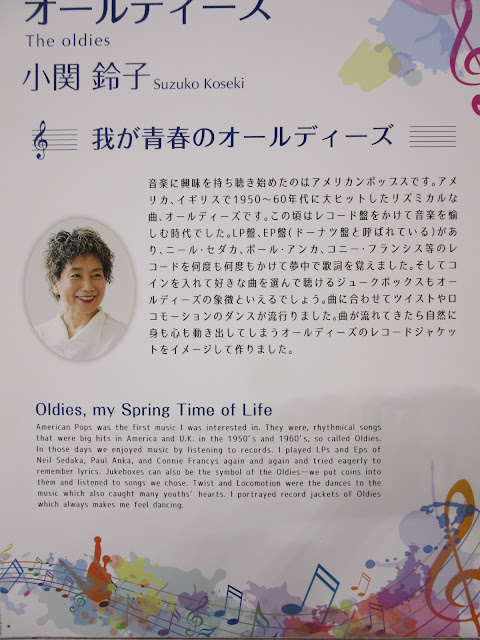 オールディーズ
The oldies
小関 鈴子 Suzuko Koseki
我が青春のオールディーズ
音楽に興味を持ち聴き始めたのはアメリカンポップスです。アメ
リカ、イギリスで1950〜60年代に大ヒットしたリズミカルな
曲、オールディーズです。この頃はレコード盤をかけて音楽を愉
しむ時代でした。LP盤、EP盤(ドーナツ盤と呼ばれている)があ
り、ニール・セダカ、ポール・アンカ、コニー・フランシス等のレ
コードを何度も何度もかけて夢中で歌詞を覚えました。そしてコ
インを入れて好きな曲を選んで聴けるジュークボックスもオー
ルディーズの象徴といえるでしょう。曲に合わせてツイストやロ
コモーションのダンスが流行りました。曲が流れてきたら自然に
身も心も動き出してしまうオールディーズのレコードジャケッ
トをイメージして作りました。
Oldies, my Spring Time of Life
American Pops was the first music I was interested in. They were, rhythmical songs
that were big hits in America and U.K. in the 1950's and 1960's, so called Oldies.
In those days we enjoyed music by listening to records. I played LPs and Eps of
Neil Sedaka, Paul Anka, and Connie Francys again and again and tried eagerly to
remember lyrics. Jukeboxes can also be the symbol of the Oldies—we put coins into
them and listened to songs we chose. Twist and Locomotion were the dances to the
music which also caught many youths' hearts. I portrayed record jackets of Oldies
which always makes me feel dancing.